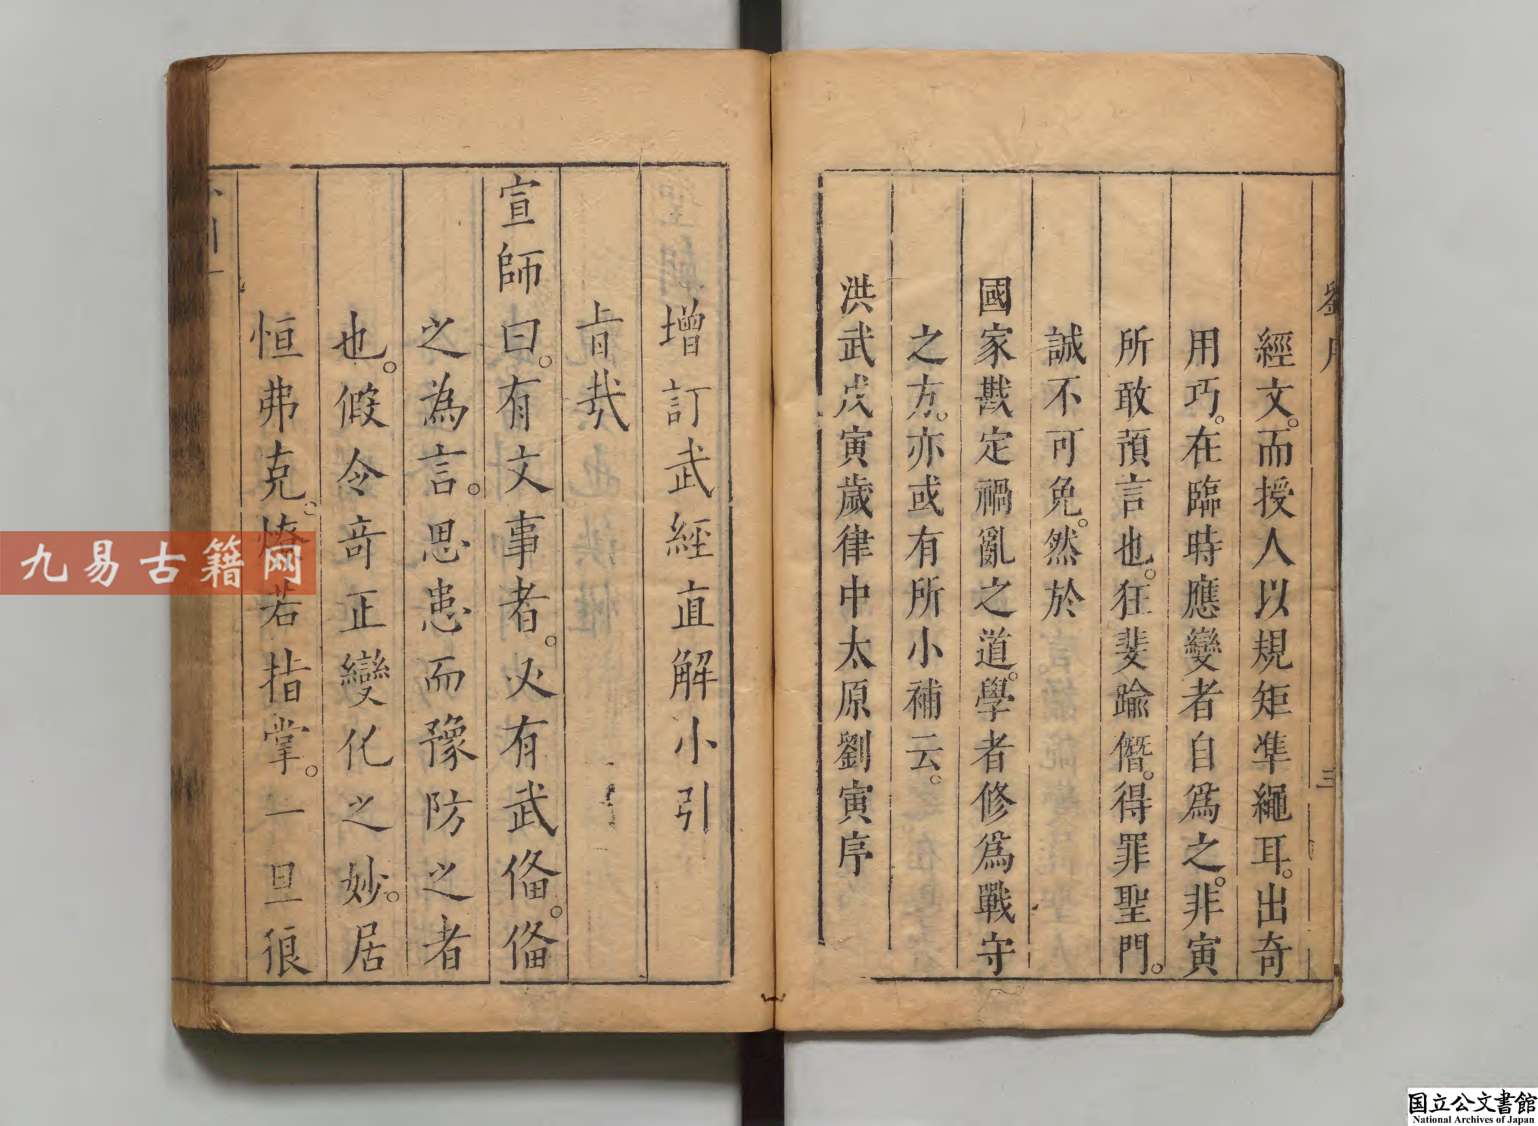 劉序
三
經文。而授人以規矩準繩耳。出奇
用巧。在臨時應變者自爲之。非寅
所敢預言也。狂斐踰僭。得罪聖門。
誠不可免。然於
國家戡定禍亂之道。學者修爲戰守
之方。亦或有所小補云。
洪武戊寅歲律中太原劉寅序
增訂武經直解小引
旨哉
宣師曰。有文事者。必有武俻。俻
之為言。思患而豫防之者
也。假令竒正變化之妙。居
恒弗克。燎若指掌。一旦狼
九易古籍网
国立公文書館
National Archives of Japan